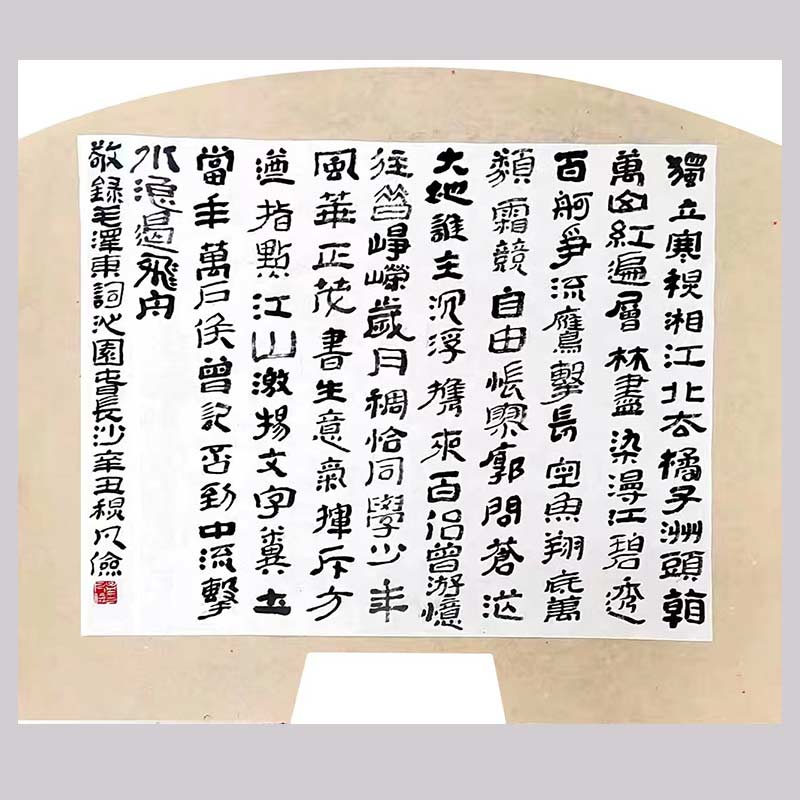 獨立寒秋湘江北去橘子洲頭看
萬山紅遍層林盡染漫江碧透
百舸爭流鷹擊長空魚翔底萬
類霜競自由悵寥廓問蒼茫
大地誰主沉浮攜來百侶曾游憶
往昔崢嶸歲月稠恰同學少年
風華正茂書生意氣揮斥方
遒指點江山激揚文字糞土
當年萬戶侯曾記否到中流擊
水浪遏飛舟
敬錄毛澤東詞沁園春長沙辛丑秋凡儉